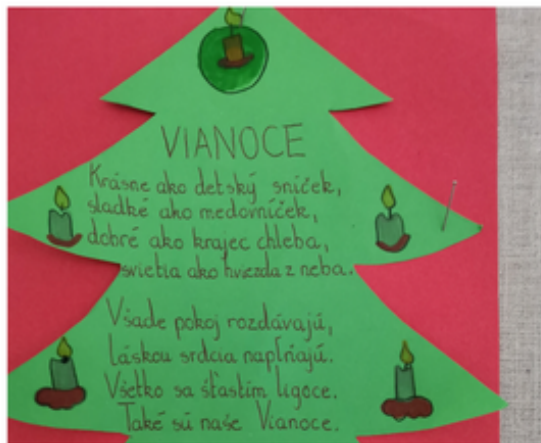 VIANOCE
Krásne ako detský sníček,
sladké ako medovníček,
dobré ako krajec chleba,
svietia ako hviezda z neba.
Všade pokoj rozdávajú,
láskou srdcia napĺňajú.
Všetko sa šťastím ligoce.
Také sú naše Vianoce.